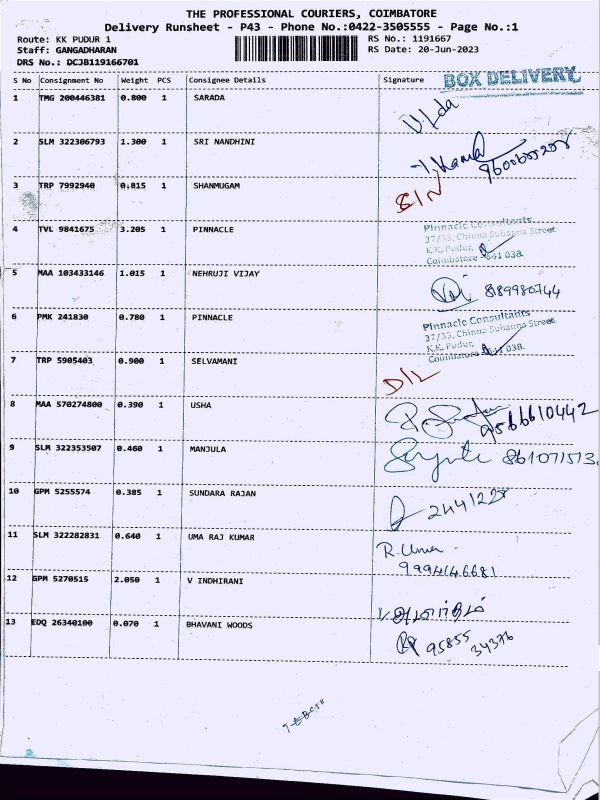 THE PROFESSIONAL COURIERS, COIMBATORE
Delivery Runsheet - P43 - Phone No:0422-3505555 - Page No.:1
Route: KK PUDUR 1 RS No.: 1191667
Staff: GANGADHARAN RS Date: 20-Jun-2023
DRS No.: DCJB119166701
S No Consignment No Weight PCS Consignee Details Signature
BOX DELIVERY
1 TMG 200446381 0.800 1 SARADA
2 SLM 322306793 1.300 1 SRI NANDHINI
3 TRP 7992940 0.815 1 SHANMUGAM
4 TVL 9841675 3.205 1 PINNACLE
Pinnacle Consultants
37/35, Chinna Subanna Street
K.K. Pudur,
Coimbatore - 641 038.
5 MAA 103433146 1.015 1 NEHRUJI VIJAY
8189980744
6 PMK 241830 0.780 1 PINNACLE
Pinnacle Consultants
37/35, Chinna Subanna Street
K.K. Pudur,
Coimbatore - 641 038.
7 TRP 5905403 0.900 1 SELVAMANI
D/L
8 MAA 570274800 0.390 1 USHA
9566610442
9 SLM 322353507 0.460 1 MANJULA
861071573
10 GPM 5255574 0.385 1 SUNDARA RAJAN
11 SLM 322282831 0.640 1 UMA RAJ KUMAR
R. Uma
9994146681
12 GPM 5270515 2.050 1 V INDHIRANI
13 EDQ 26340100 0.070 1 BHAVANI WOODS
95855
34376